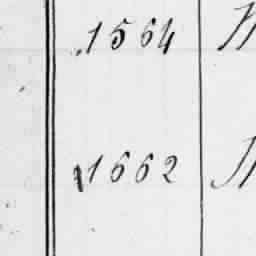 1564
1662